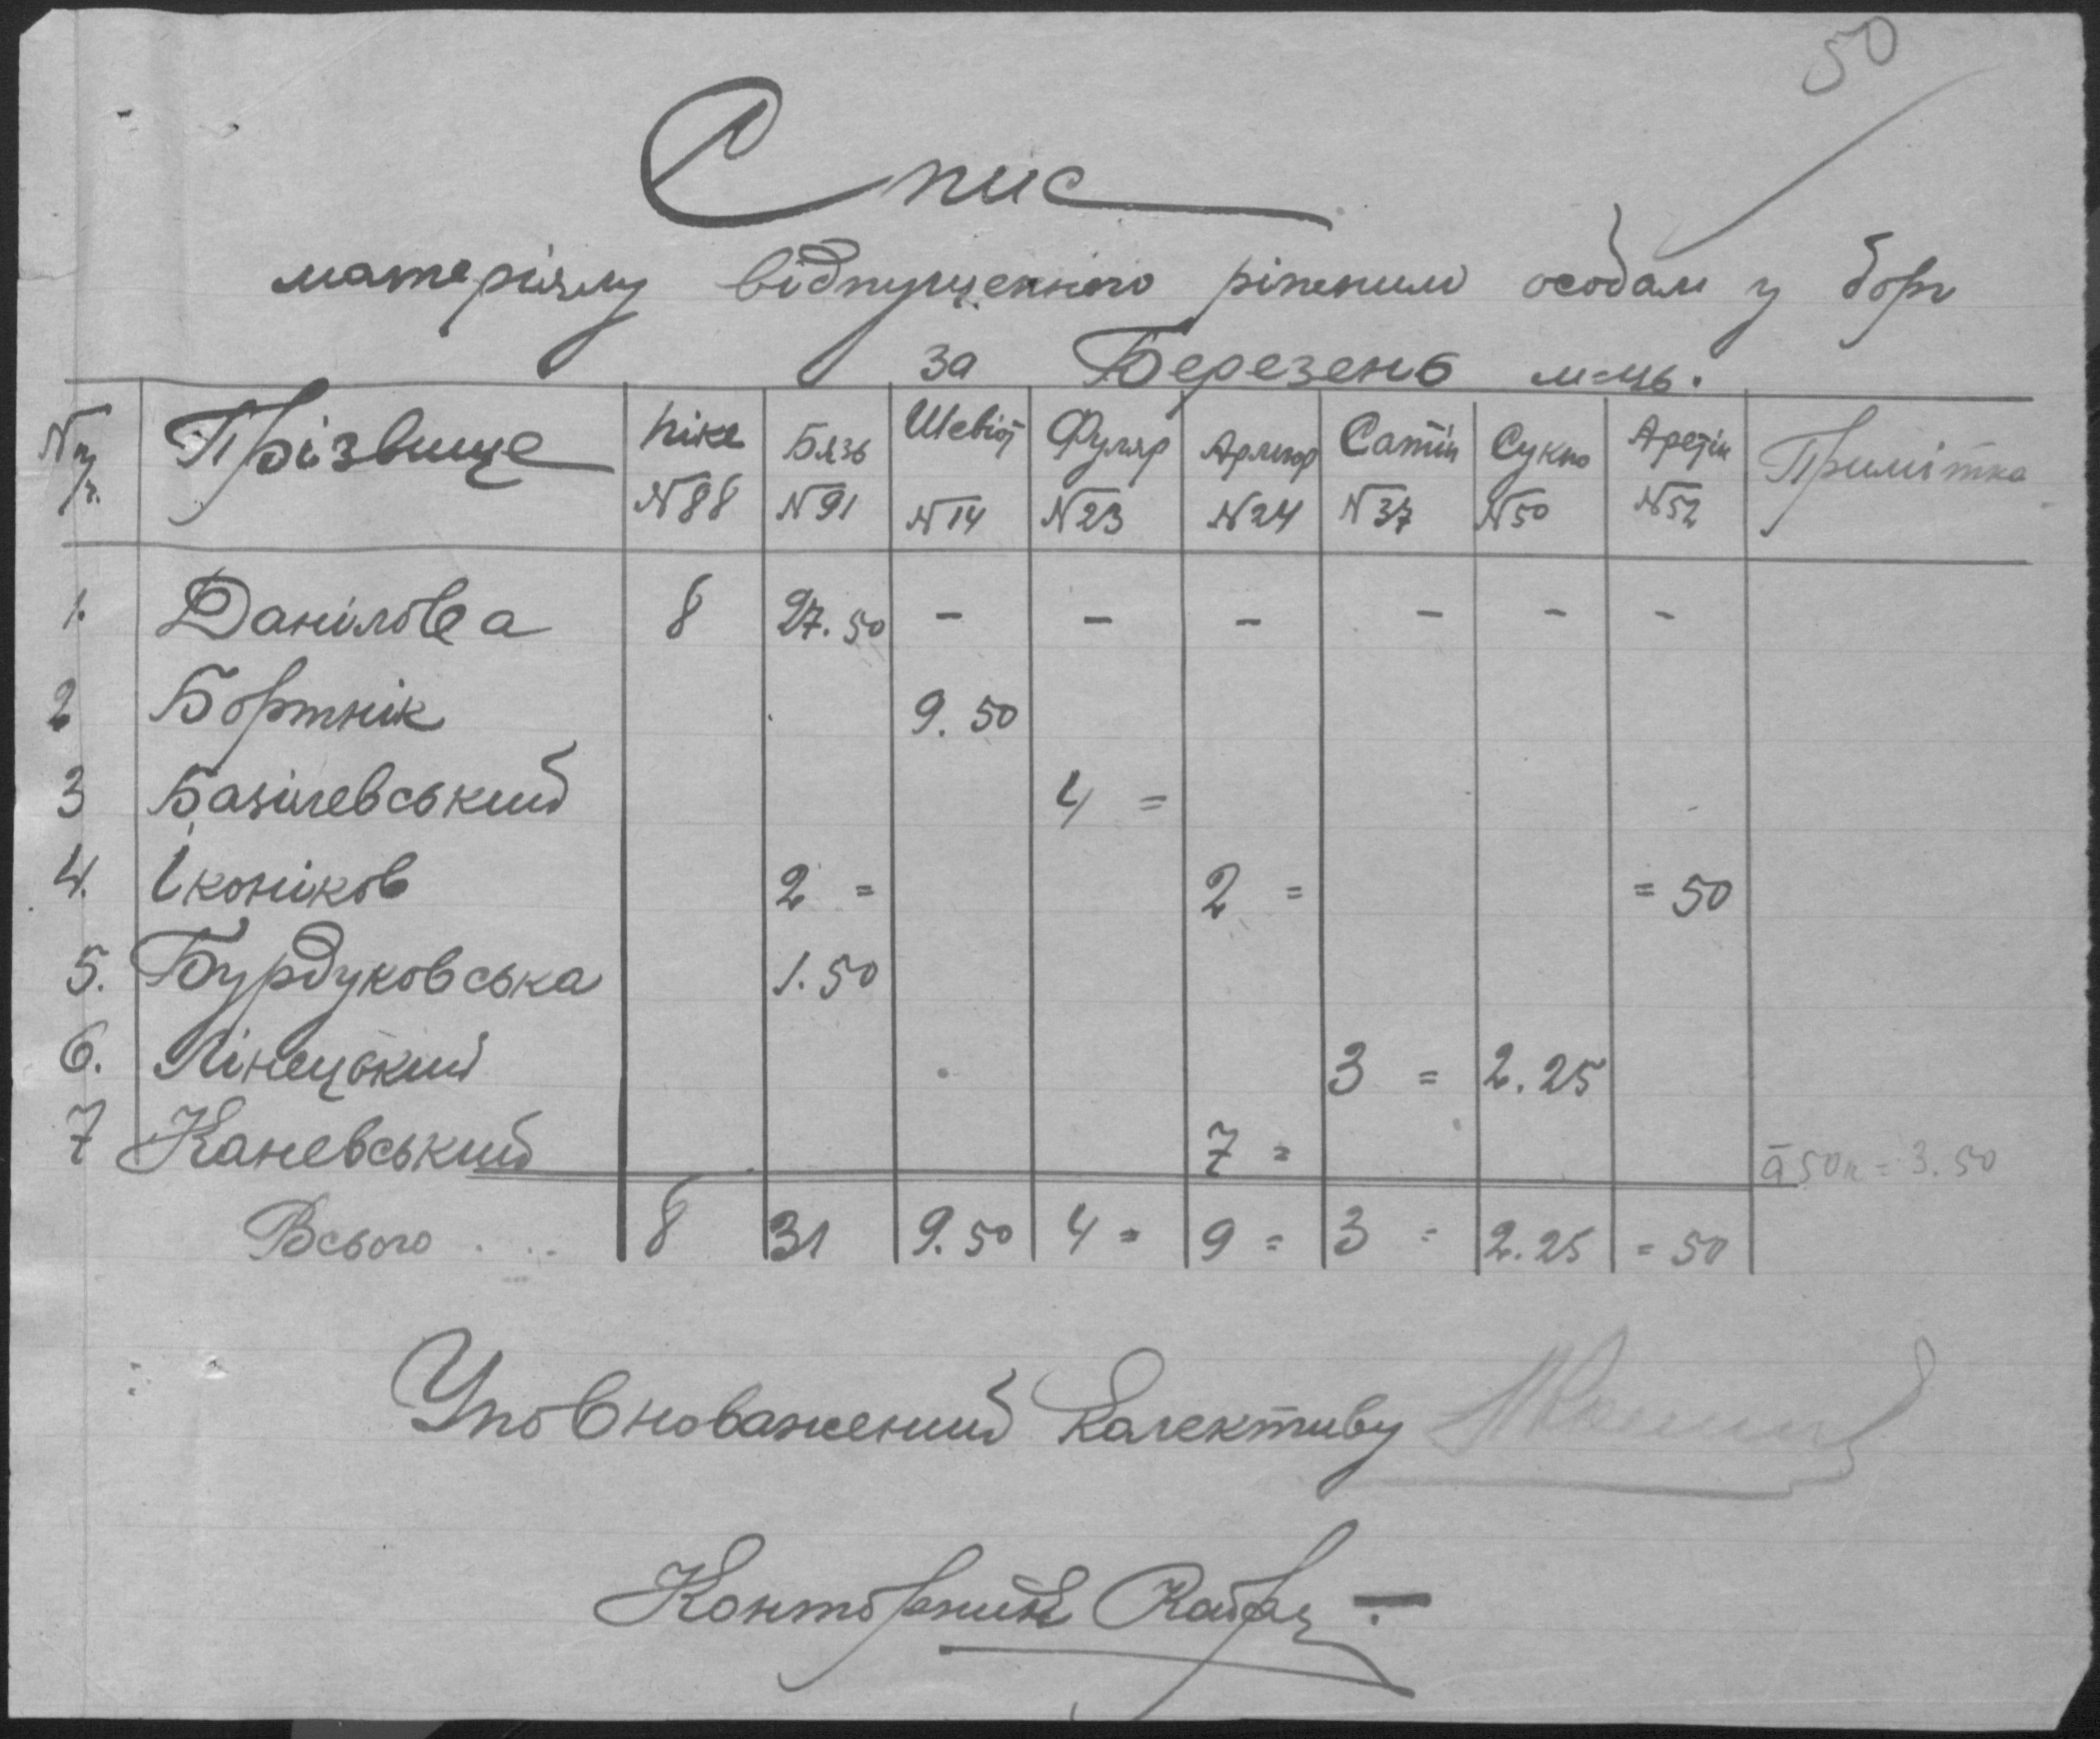 50
Спис
матеріялу відпущенного ріжним особам у борг
за Березень м-ць.
№ п/п. Прізвище Піке №88 Бязь №91 Шевіот №14 Фуляр №23 №24 Сатін №37 Сукно №50 №52 Примітка
1. Данілова 8 27.50 - - - - - -
2 Бортнік 9.50
3 Базілевський 4 =
4. Іконіков 2 = 2 = = 50
5. Бурдуковська 1.50
6. Лінецький 3 = 2.25
7 Каневський 7 = а 50к = 3.50
Всього . . . 8 31 9.50 4 = 9 = 3 = 2.25 = 50
Уповноважений Колективу
Конторник